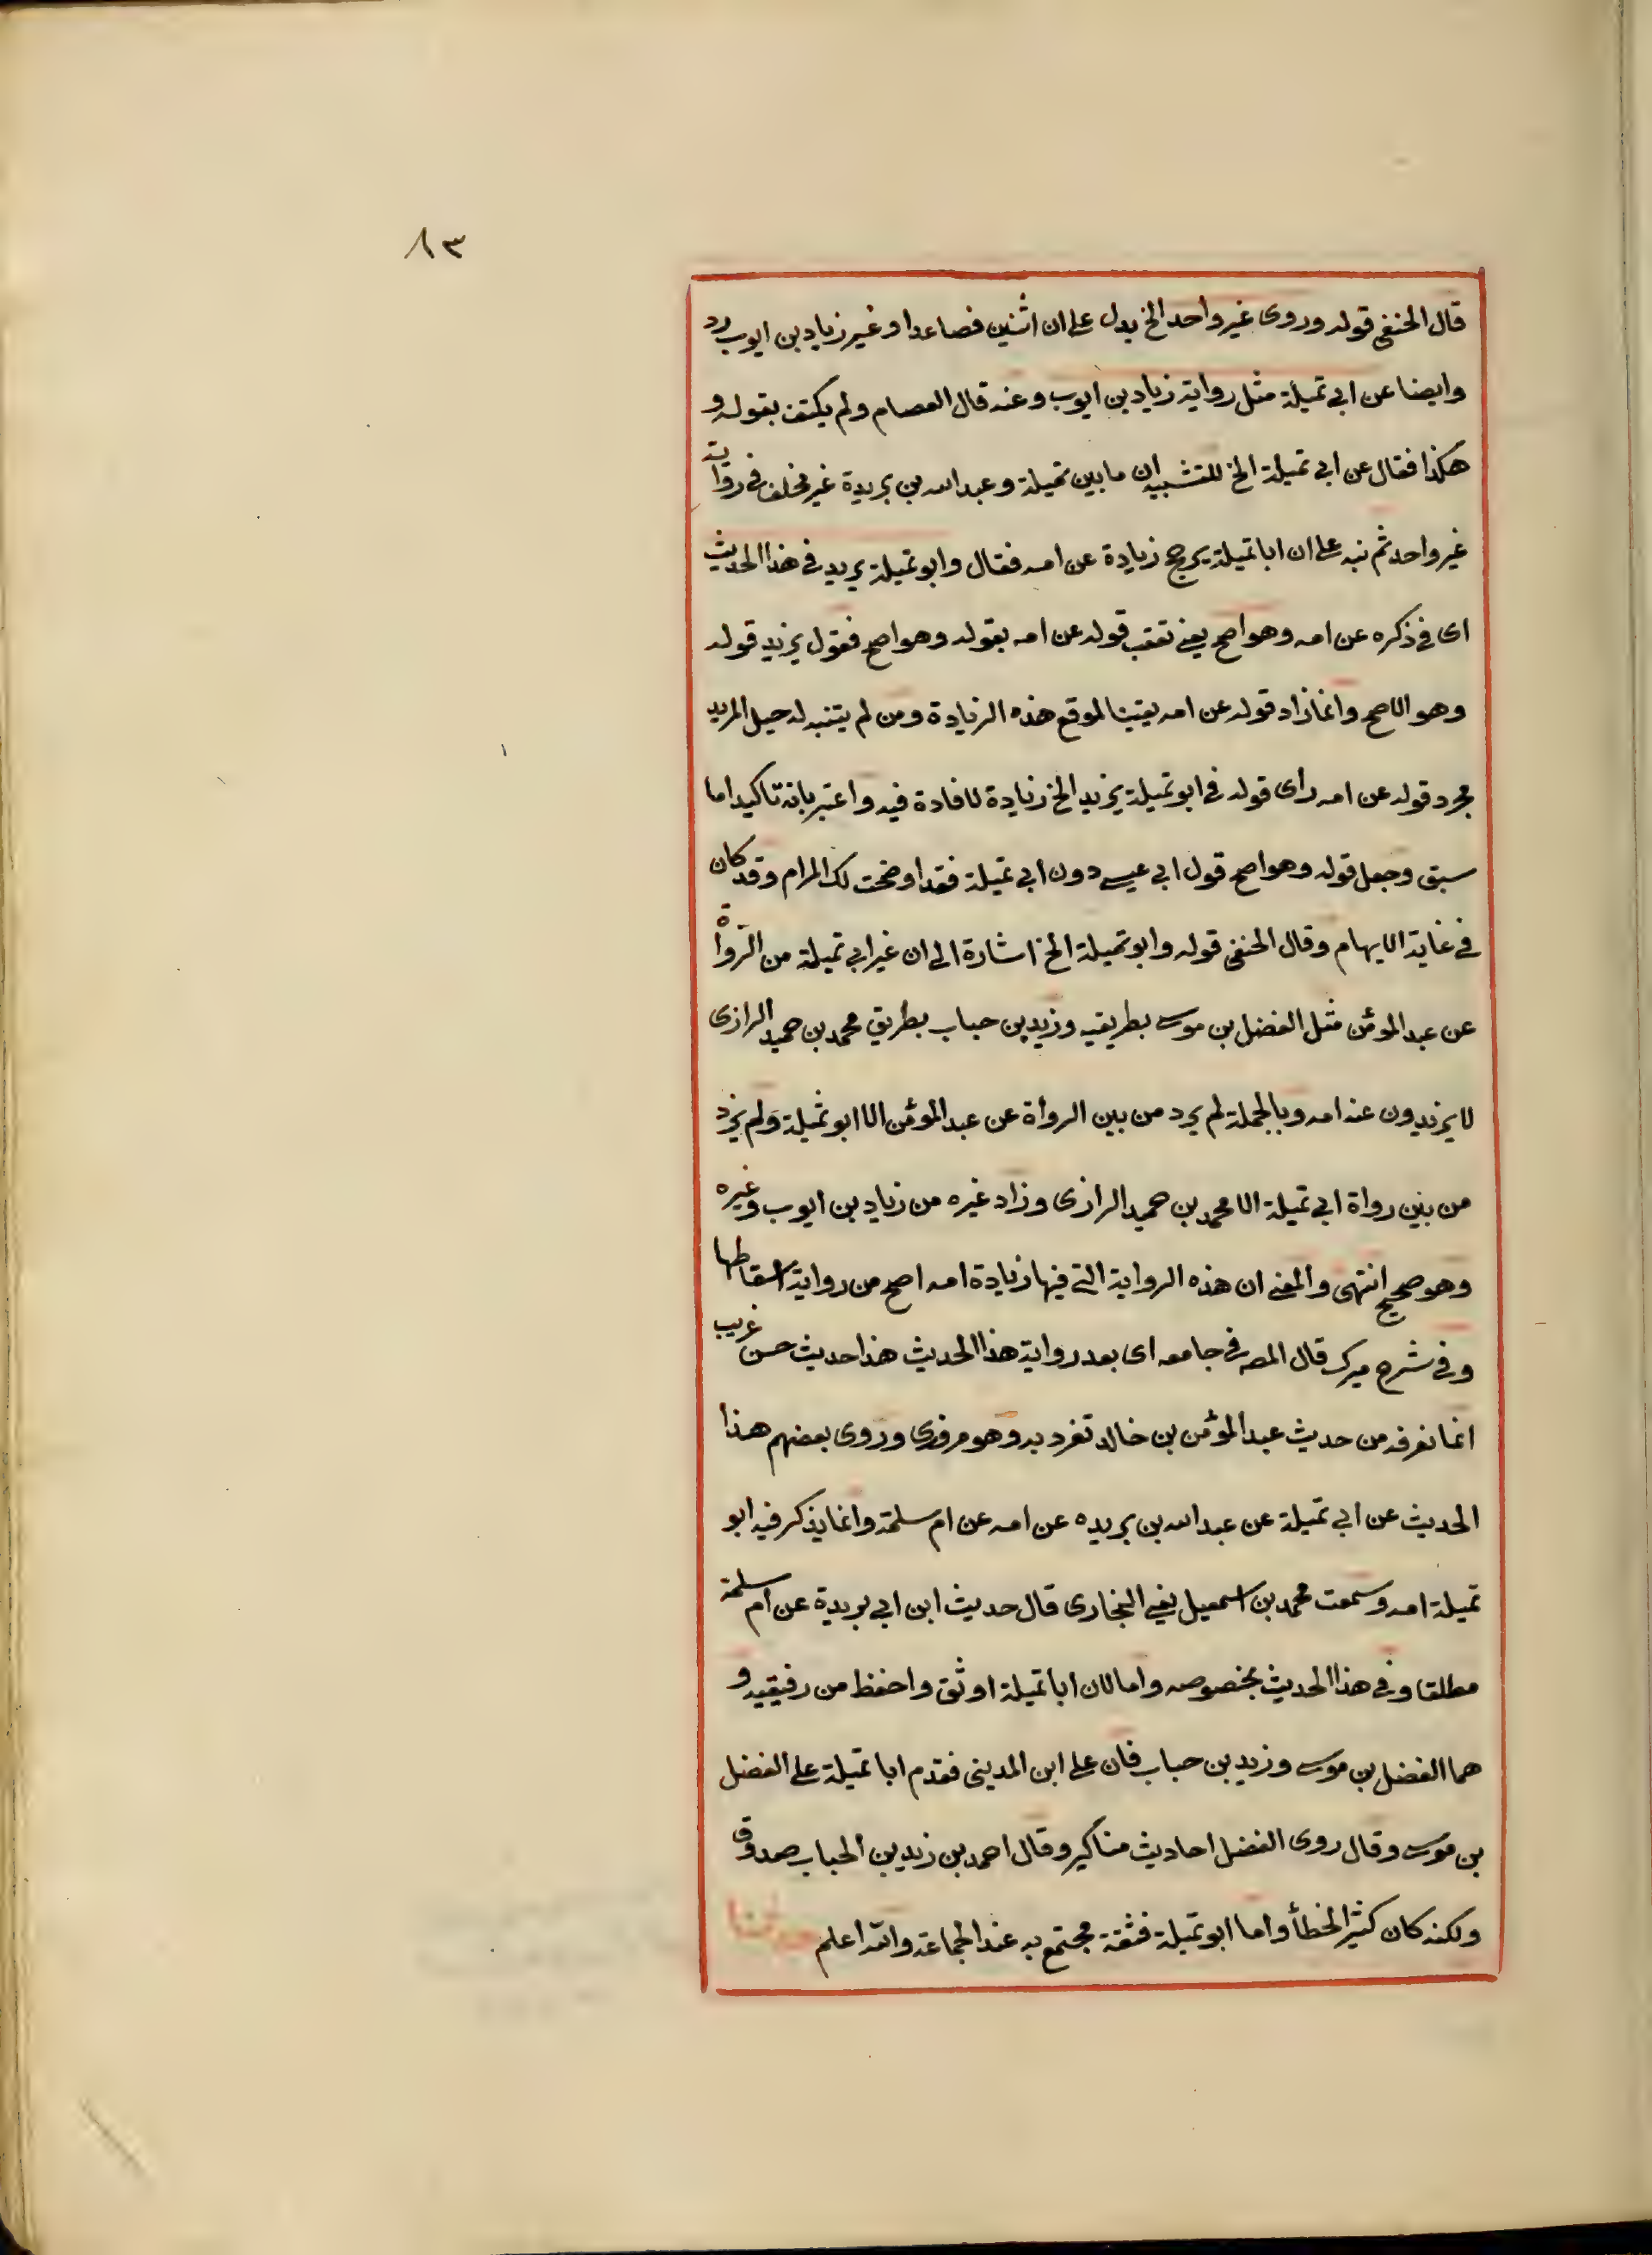 ٨٣
قال الحنفى قوله وروى غير واحد الخ يدل على ان اثنين فصاعدا وغير زياد بن ايوب رد
وايضا عن ابى تميلة مثل رواية زياد بن ايوب وعنه قال العصام ولم يكتف بقوله و
هكذا فقال عن ابى تميلة الخ للتشبيه ان ما بين تميلة وعبد الله بن بريدة غير مختلف فى رواية
غير واحد ثم نبه على ان ابا تميلة يرجح زيادة عن امه فقال وابو تميلة يريد فى هذا الحديث
اى فى ذكره عن امه وهو اصح يعنى تعقب قوله عن امه بقوله وهو اصح فقول يزيد قوله
وهو الاصح وانما زاد قوله عن امه يقينا لموقع هذه الزيادة ومن لم يتنبه له حيل المريد
مجرد قوله عن امه راى قوله فى ابو تميلة يزيد الخ زيادة لا فادة فيه واعتبر بانه تاكيد اما
سبق وجعل قوله وهو اصح قول ابى عيسى دون ابى تميلة فقد اوضحت لك المرام وقد كان
فى غاية الابهام وقال الحنفى قوله وابو تميلة الخ اشارة الى ان غير ابى تميلة من الرواة
عن عبد المؤمن مثل الفضل بن موسى بطريقيه وزيد بن حباب بطريق محمد بن حميد الرازى
لا يزيدون عنه امه وبالجملة لم يرد من بين الرواة عن عبد المؤمن الا ابو تميلة ولم يزد
من بين رواة ابى تميلة الا محمد بن حميد الرازى وزاد غيره من زياد بن ايوب وغيره
وهو صحيح انتهى والمعنى ان هذه الرواية التى فيها زيادة امه اصح من رواية اسقاطها
وفى شرح ميرك قال المصـ فى جامعه اى بعد رواية هذا الحديث هذا حديث حسن غريب
انما نعرفه من حديث عبد المؤمن بن خالد تفرد به وهو مروزى وروى بعضهم هذا
الحديث عن ابى تميلة عن عبد الله بن بريده عن امه عن ام سلمة وانما يذكر فيه ابو
تميلة امه وسمعت محمد بن اسمعيل يعنى البخارى قال حديث ابن ابى بريدة عن ام سلمة
مطلقا وفى هذا الحديث بخصوصه واما لان ابا تميلة اوثق واحفظ من رفيقيه و
هما الفضل بن موسى وزيد بن حباب فان على ابن المدينى فقدم ابا تميلة على الفضل
بن موسى وقال روى الفضل احاديث مناكير وقال احمد بن زيد بن الحباب صدوق
ولكنه كان كثير الخطأ واما ابو تميلة فثقة مجتمع به عند الجماعة والله اعلم